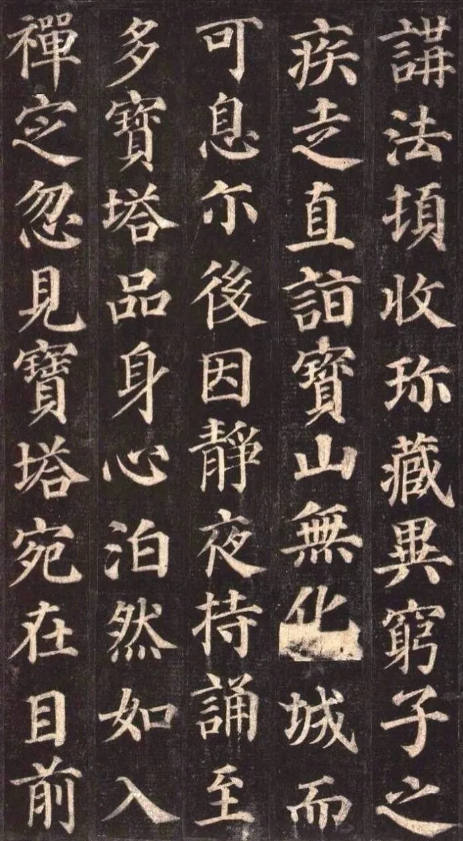 講法頓收珎藏異窮子之
疾走直詣寳山無化城而
可息尒後因靜夜持誦至
多寳塔品身心泊然如入
禪定忽見寳塔宛在目前